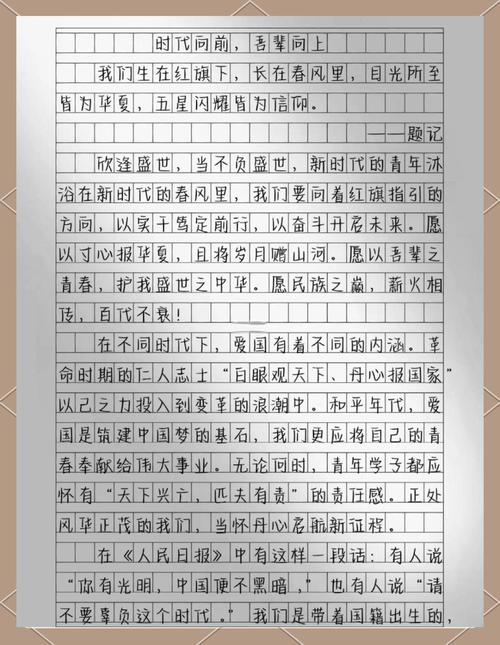 时代向前，吾辈向上
我们生在红旗下，长在春风里，目光所至
皆为华夏，五星闪耀皆为信仰。
——题记
欣逢盛世，当不负盛世，新时代的青年沐
浴在新时代的春风里，我们要向着红旗指引的
方向，以实干笃定前行，以奋斗开启未来。愿
以寸心报华夏，且将岁月赠山河。愿以吾辈之
青春，护我盛世之中华。愿民族之巅，薪火相
传，百代不衰！
在不同时代下，爱国有着不同的内涵。革
命时期的仁人志士“白眼观天下、丹心报国家”
以己之力投入到变革的浪潮中。和平年代，爱
国是筑建中国梦的基石，我们更应将自己的青
春奉献给伟大事业。无论何时，青年学子都应
怀有“天下兴亡，匹夫有责”的责任感。正处
风华正茂的我们，当怀丹心启航新征程。
在《人民日报》中有这样一段话：有人说
“你有光明，中国便不黑暗，”也有人说“请
不要辜负这个时代。”我们是带着国籍出生的，